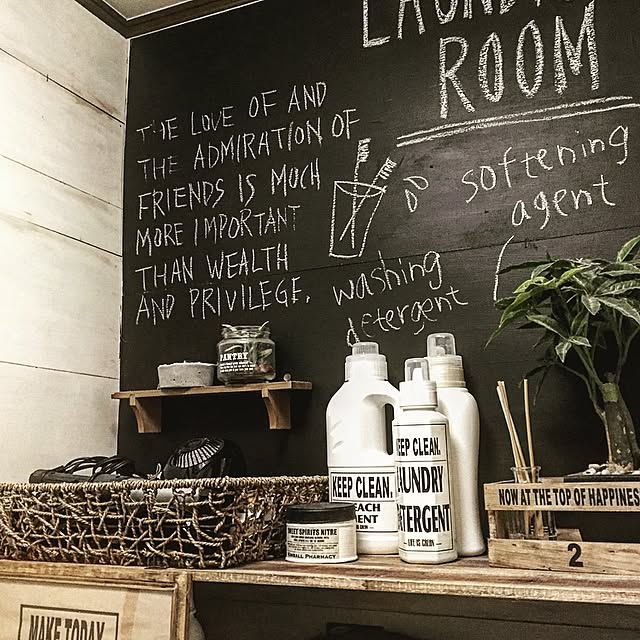 LAUNDRY
ROOM
THE LOVE OF AND
THE ADMIRATION OF
FRIENDS IS MUCH
MORE IMPORTANT
THAN WEALTH
AND PRIVILEGE.
softening
agent
washing
detergent
PANTRY
KEEP CLEAN.
KEEP CLEAN.
LAUNDRY
DETERGENT
LIFE IS GREEN
SPIRITS NITRE
PHARMACY
NOW AT THE TOP OF HAPPINES
2
MAKE TODAY